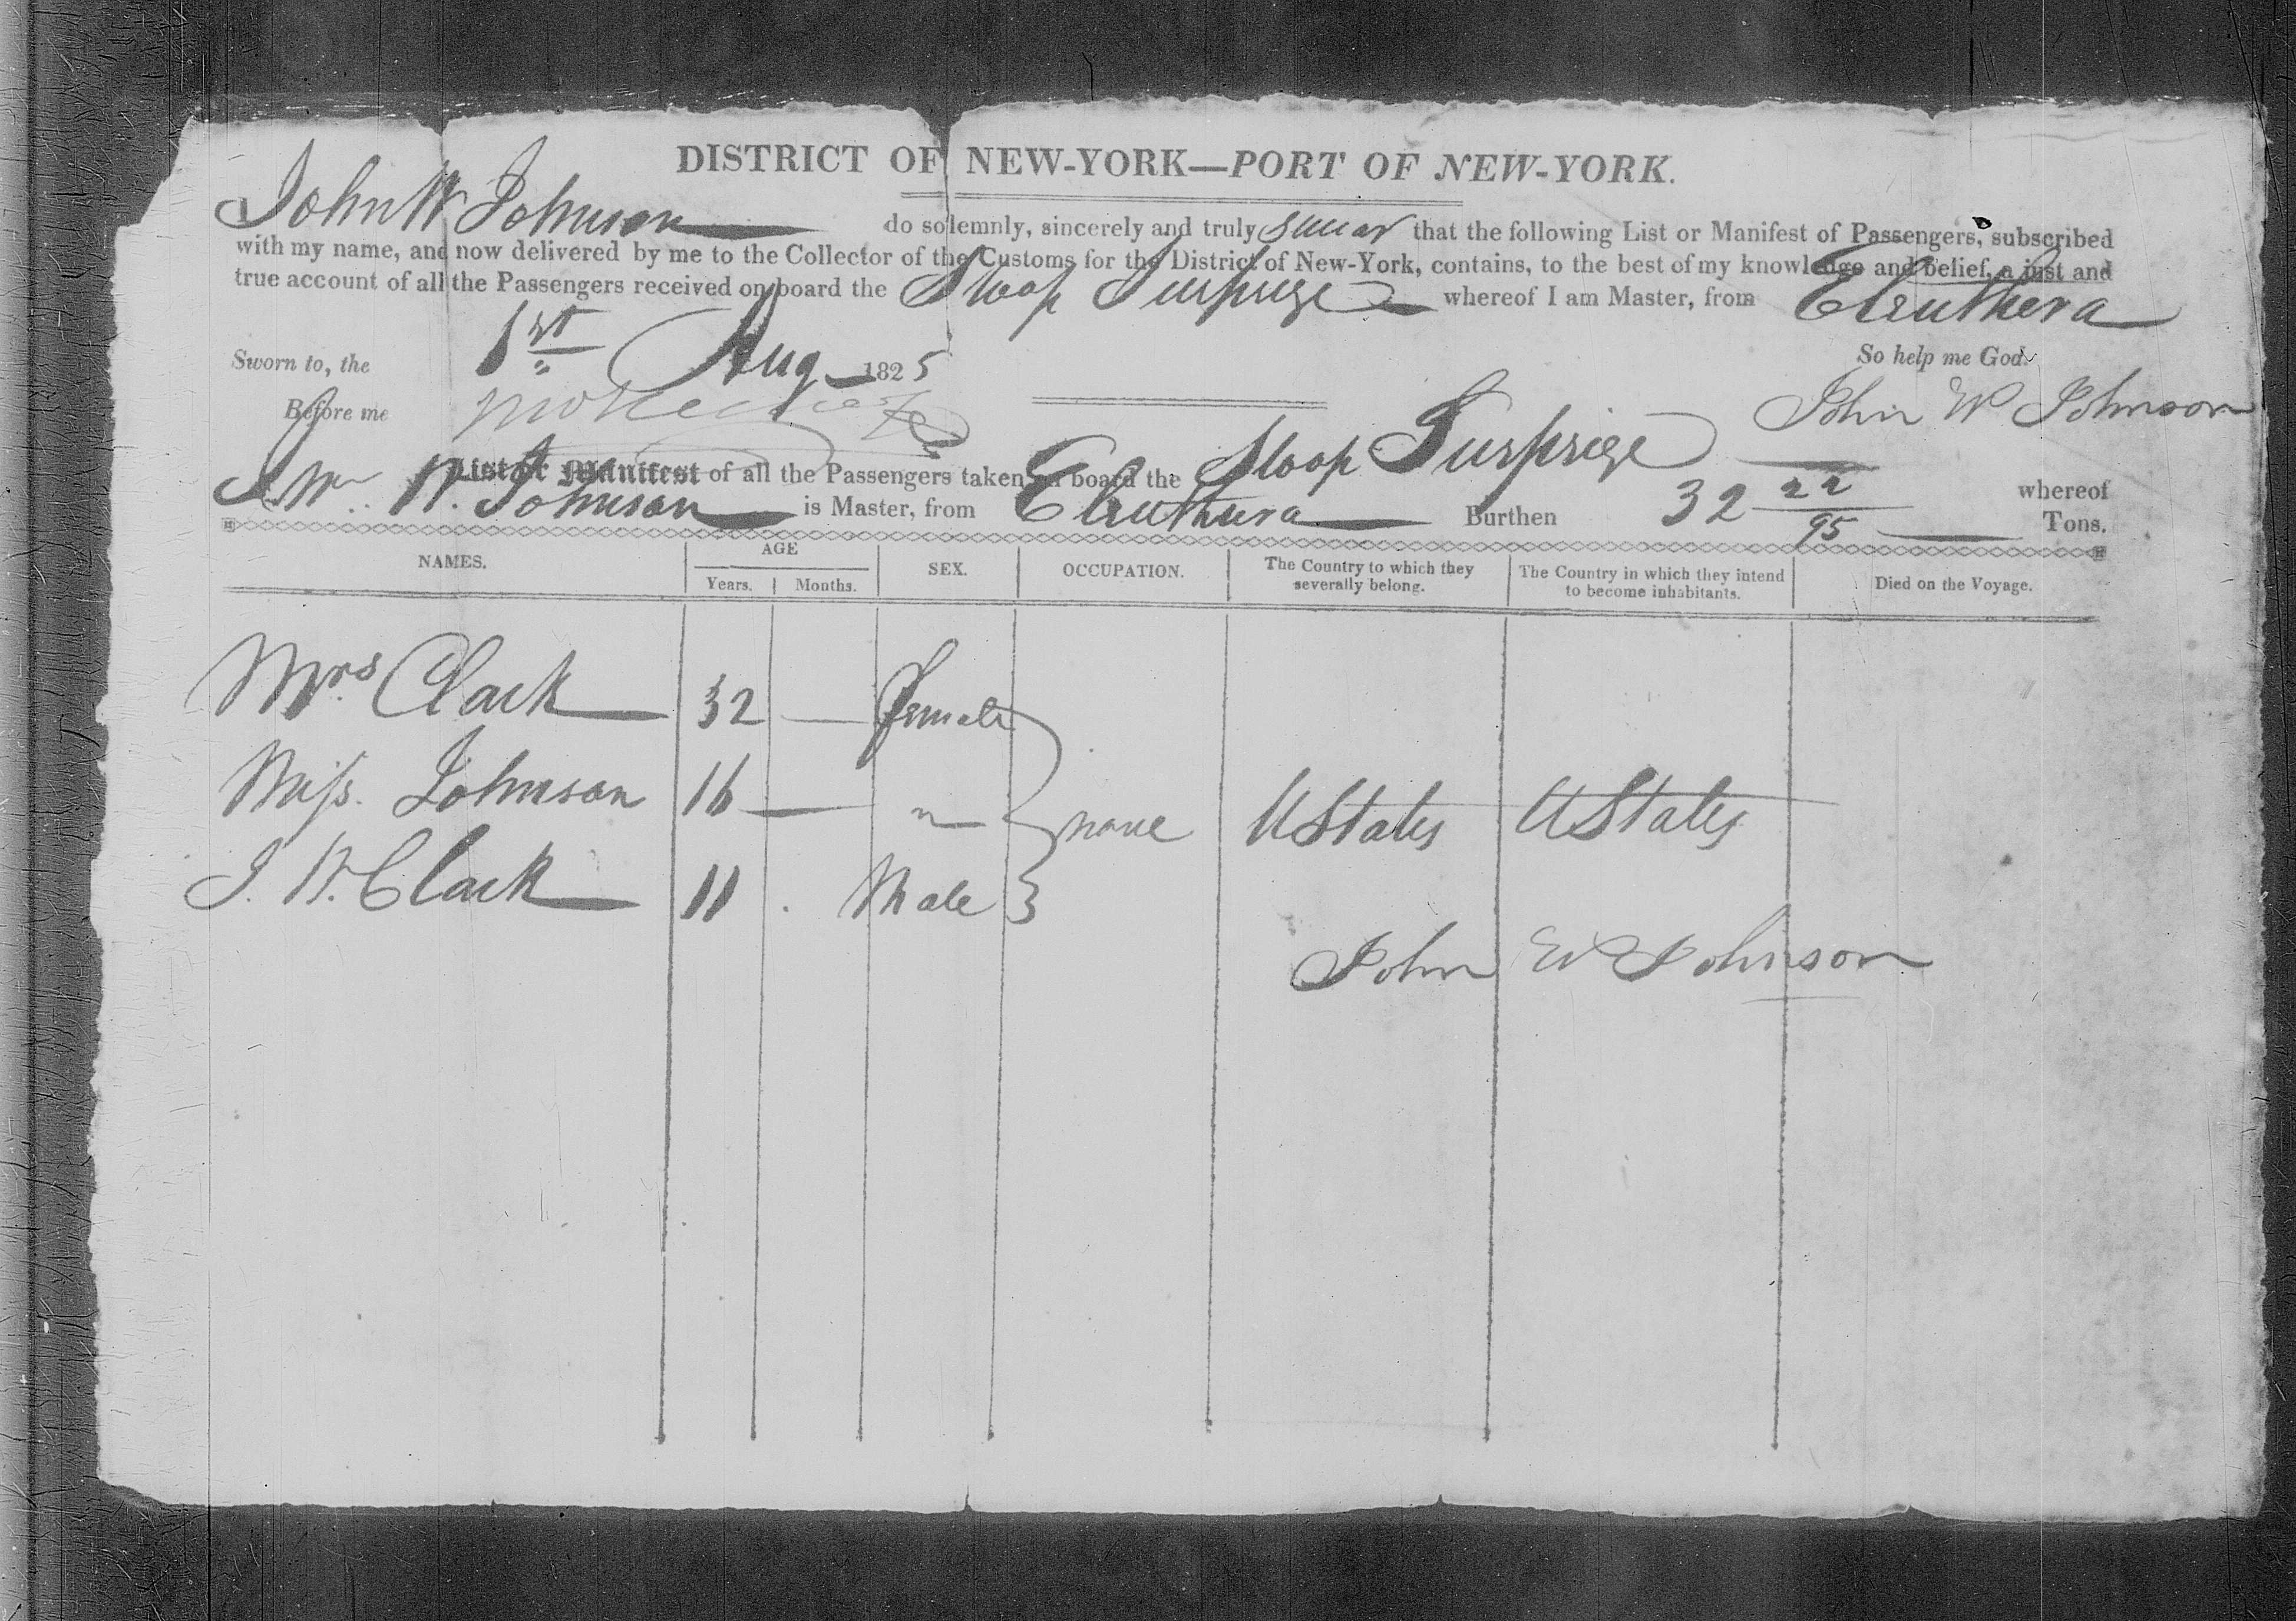 DISTRICT OF NEW-YORK—PORT OF NEW-YORK.
I John W Johnson do solemnly, sincerely and truly swear that the following List or Manifest of Passengers, subscribed
with my name, and now delivered by me to the Collector of the Customs for the District of New-York, contains, to the best of my knowledge and belief, a just and
true account of all the Passengers received on board the Sloop Surprize whereof I am Master, from Eleuthera
Sworn to, the 1st Aug 1825 So help me God.
Before me John W Johnson
List or Manifest of all the Passengers taken on board the Sloop Surprize whereof
W. Johnson is Master, from Eleuthera Burthen 32 22/95 Tons.
NAMES. AGE SEX. OCCUPATION. The Country to which they severally belong. The Country in which they intend to become inhabitants. Died on the Voyage.
Years. Months.
Mrs Clark 32 — female
Miss. Johnson 16 — " none U States U States
J. W. Clark 11 . Male
John W Johnson